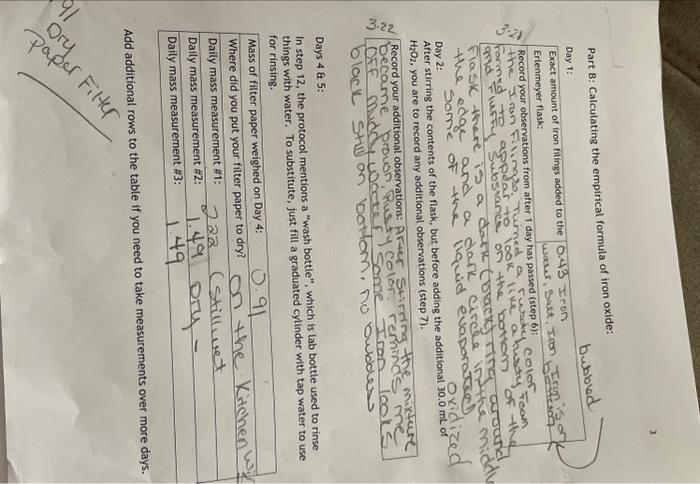 3
Part B: Calculating the empirical formula of iron oxide:
bubbled
Day 1:
Exact amount of iron filings added to the Erlenmeyer flask:
0.43 Iron
water, Salt, Iron Iron is on bottom
3-21
Record your observations from after 1 day has passed (step 6):
the Iron Filings turned a rusty color
formed to appear to look like a foam
and Fluffy Substance on the bottom of the
Flask there is a dark (black) ring around
the edge and a dark circle in the middle
Some of the liquid evaporated
Oxidized
Day 2:
After stirring the contents of the flask, but before adding the additional 30.0 mL of
H₂O₂, you are to record any additional observations (step 7).
3-22
Record your additional observations: After Stirring the mixture
became brown, Rusty color. reminds me
OFF muddy water Some Iron looks
black still on bottom, no bubbles
Days 4 & 5:
In step 12, the protocol mentions a "wash bottle", which is lab bottle used to rinse
things with water. To substitute, just fill a graduated cylinder with tap water to use
for rinsing.
Mass of filter paper weighed on Day 4: 0.91
Where did you put your filter paper to dry? on the Kitchen
Daily mass measurement #1: 2.22 (still wet
Daily mass measurement #2: 1.49 Dry -
Daily mass measurement #3: 1.49
Add additional rows to the table if you need to take measurements over more days.
.91
Dry
Paper Filter